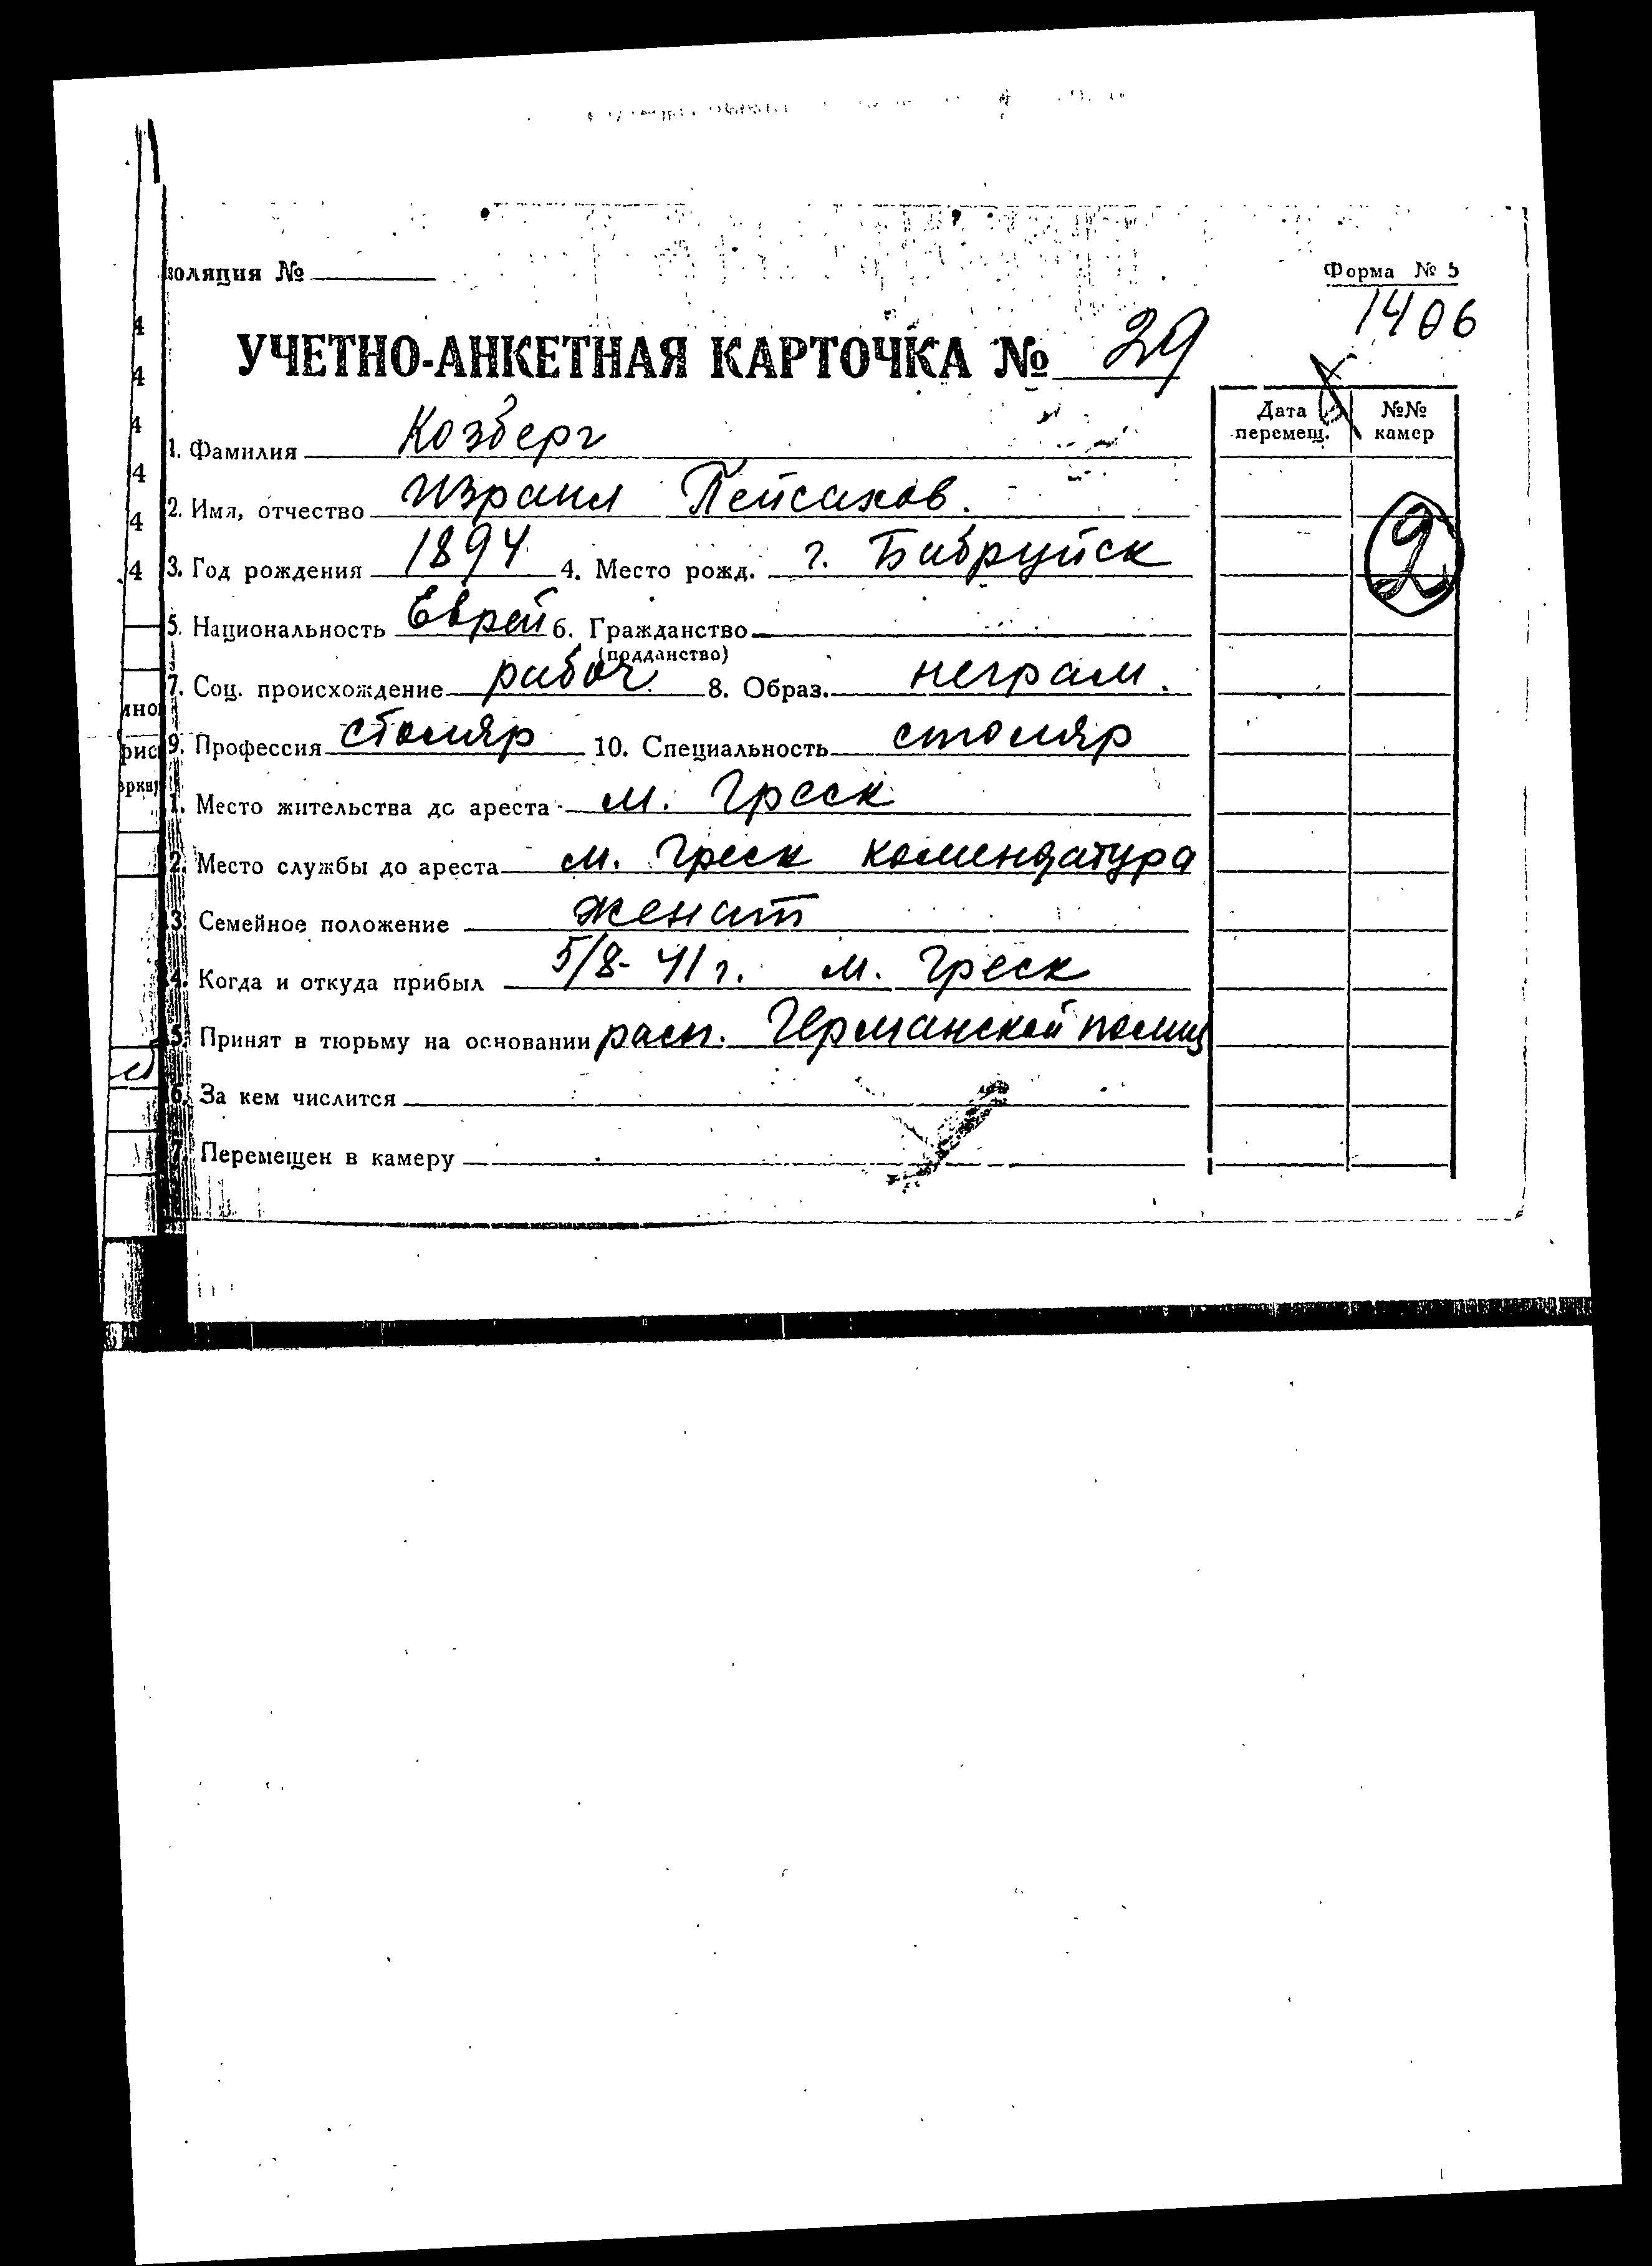 золяция №
Форма № 5
1406
УЧЕТНО-АНКЕТНАЯ КАРТОЧКА № 29
Дата перемещ. №№ камер
1. Фамилия Козберг
2. Имя, отчество Израил Пейсахов.
2
3. Год рождения 1894 4. Место рожд. г. Бобруйск
5. Национальность Еврей 6. Гражданство
(подданство)
7. Соц. происхождение рабоч. 8. Образ. неграм.
9. Профессия столяр 10. Специальность столяр
1. Место жительства до ареста м. Греск
2. Место службы до ареста м. Греск комендатура
3. Семейное положение женат
4. Когда и откуда прибыл 5/8-41 г. м. Греск
5. Принят в тюрьму на основании расп. Германской полиц
6. За кем числится
7. Перемещен в камеру